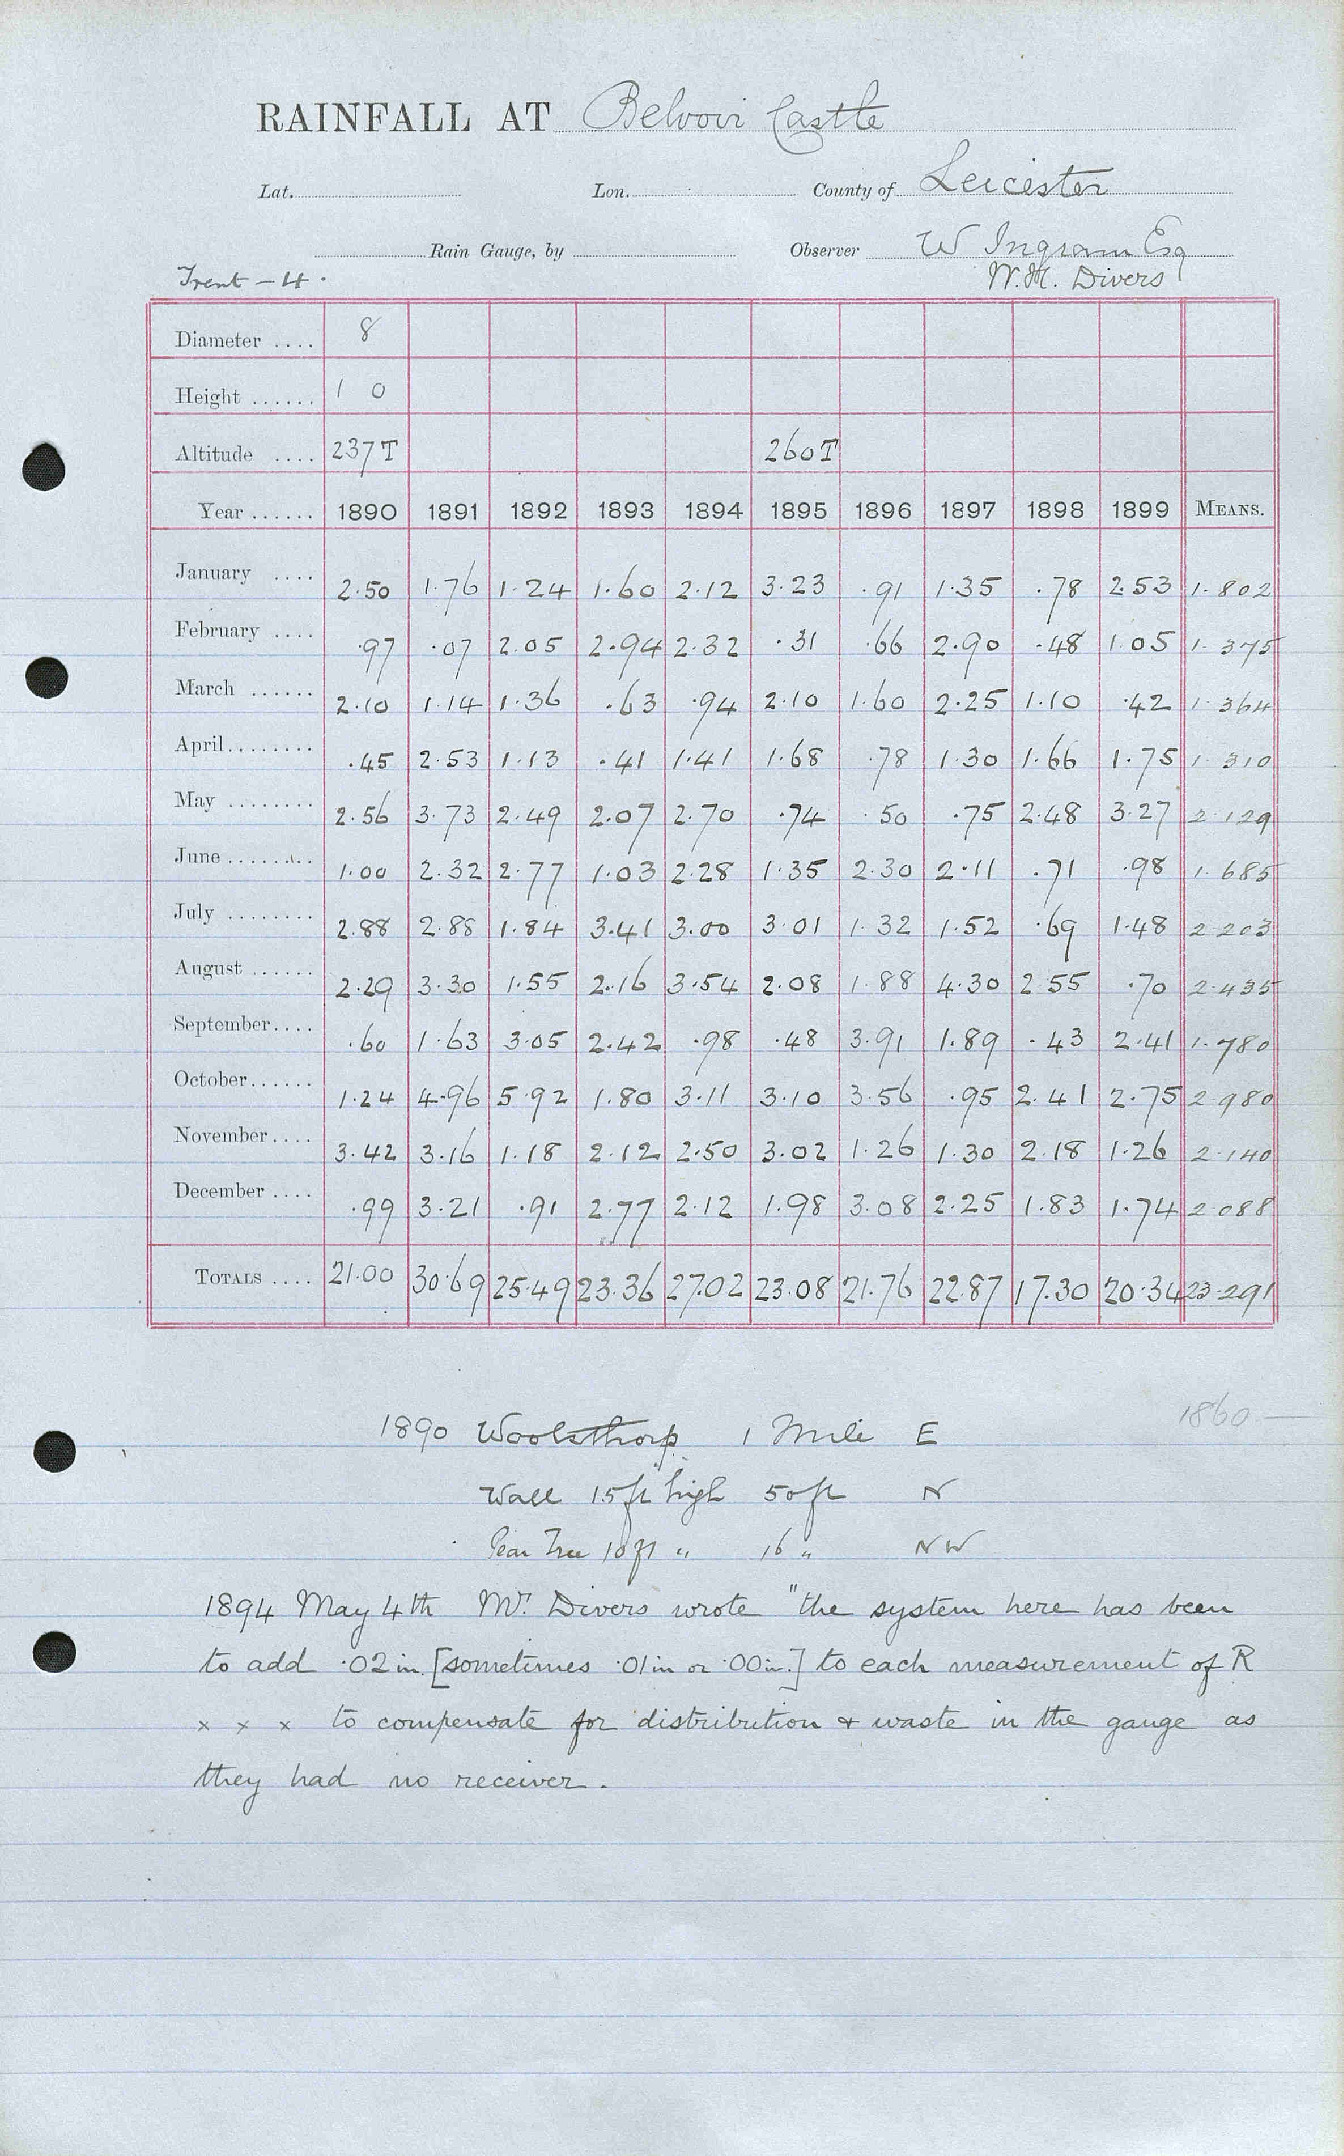 RAINFALL AT Belvoir Castle
Lat. Lon. County of Leicester
Rain Gauge, by Observer W Ingram Esq
Trent - 4. W.H. Divers
Diameter .... 8
Height ...... 1 0
Altitude .... 237T 260T
Year ...... 1890 1891 1892 1893 1894 1895 1896 1897 1898 1899 MEANS.
January .... 2.50 1.76 1.24 1.60 2.12 3.23 .91 1.35 .78 2.53 1.802
February .... .97 .07 2.05 2.94 2.32 .31 .66 2.90 .48 1.05 1.375
March ...... 2.10 1.14 1.36 .63 .94 2.10 1.60 2.25 1.10 .42 1.364
April........ .45 2.53 1.13 .41 1.41 1.68 .78 1.30 1.66 1.75 1.310
May ........ 2.56 3.73 2.49 2.07 2.70 .74 .50 .75 2.48 3.27 2.129
June ........ 1.00 2.32 2.77 1.03 2.28 1.35 2.30 2.11 .71 .98 1.685
July ........ 2.88 2.88 1.84 3.41 3.00 3.01 1.32 1.52 .69 1.48 2.203
August ...... 2.29 3.30 1.55 2.16 3.54 2.08 1.88 4.30 2.55 .70 2.435
September.... .60 1.63 3.05 2.42 .98 .48 3.91 1.89 .43 2.41 1.780
October...... 1.24 4.96 5.92 1.80 3.11 3.10 3.56 .95 2.41 2.75 2.980
November.... 3.42 3.16 1.18 2.12 2.50 3.02 1.26 1.30 2.18 1.26 2.140
December .... .99 3.21 .91 2.77 2.12 1.98 3.08 2.25 1.83 1.74 2.088
TOTALS .... 21.00 30.69 25.49 23.36 27.02 23.08 21.76 22.87 17.30 20.34 23.291
1860 —
1890 Woolsthorp 1 Mile E
Wall 15ft high 50ft N
Pear Tree 10ft " 16 " NW
1894 May 4th Mr. Divers wrote "the system here has been
to add .02in. [sometimes .01in or .00in.] to each measurement of R
x x x to compensate for distribution & waste in the gauge as
they had no receiver.